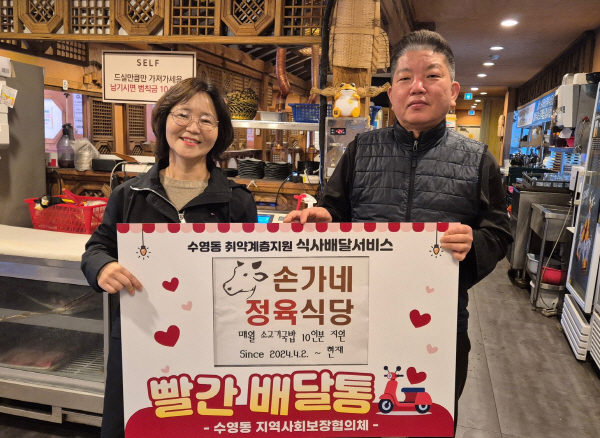 SELF
드실만큼만 가져가세요
남기시면 벌칙금 10
수영동 취약계층지원 식사배달서비스
손가네
정육식당
매월 소고기국밥 10인분 지원
Since 2024.4.2. ~ 현재
빨간 배달통
- 수영동 지역사회보장협의체 -